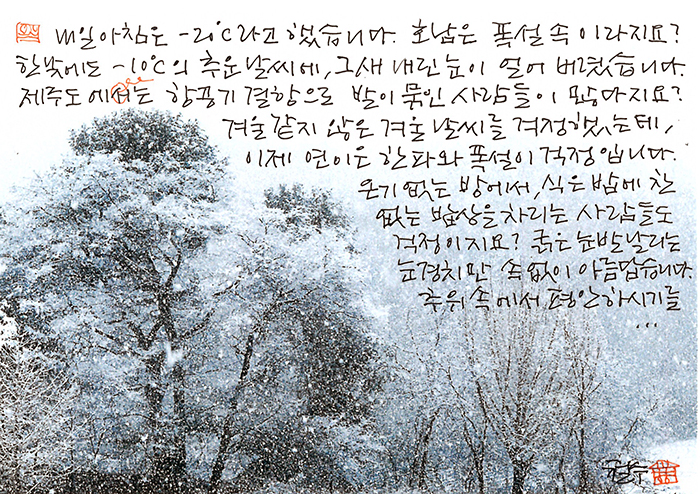 내일 아침은 -20°C라고 했습니다. 호남은 폭설 속 이라지요?
한낮에도 -10°C의 추운날씨에, 그새 내린 눈이 얼어 버렸습니다.
제주도에서는 항공기 결항으로 발이 묶인 사람들이 많다지요?
겨울 같지 않은 겨울 날씨를 걱정했는데,
이제 연이은 한파와 폭설이 걱정입니다.
온기없는 방에서, 식은 밥에 찬
없는 밥상을 차리는 사람들도
걱정이지요? 굵은 눈발 날리는
눈경치만 속없이 아름답습니다.
추위 속에서 평안하시기를
...
철수